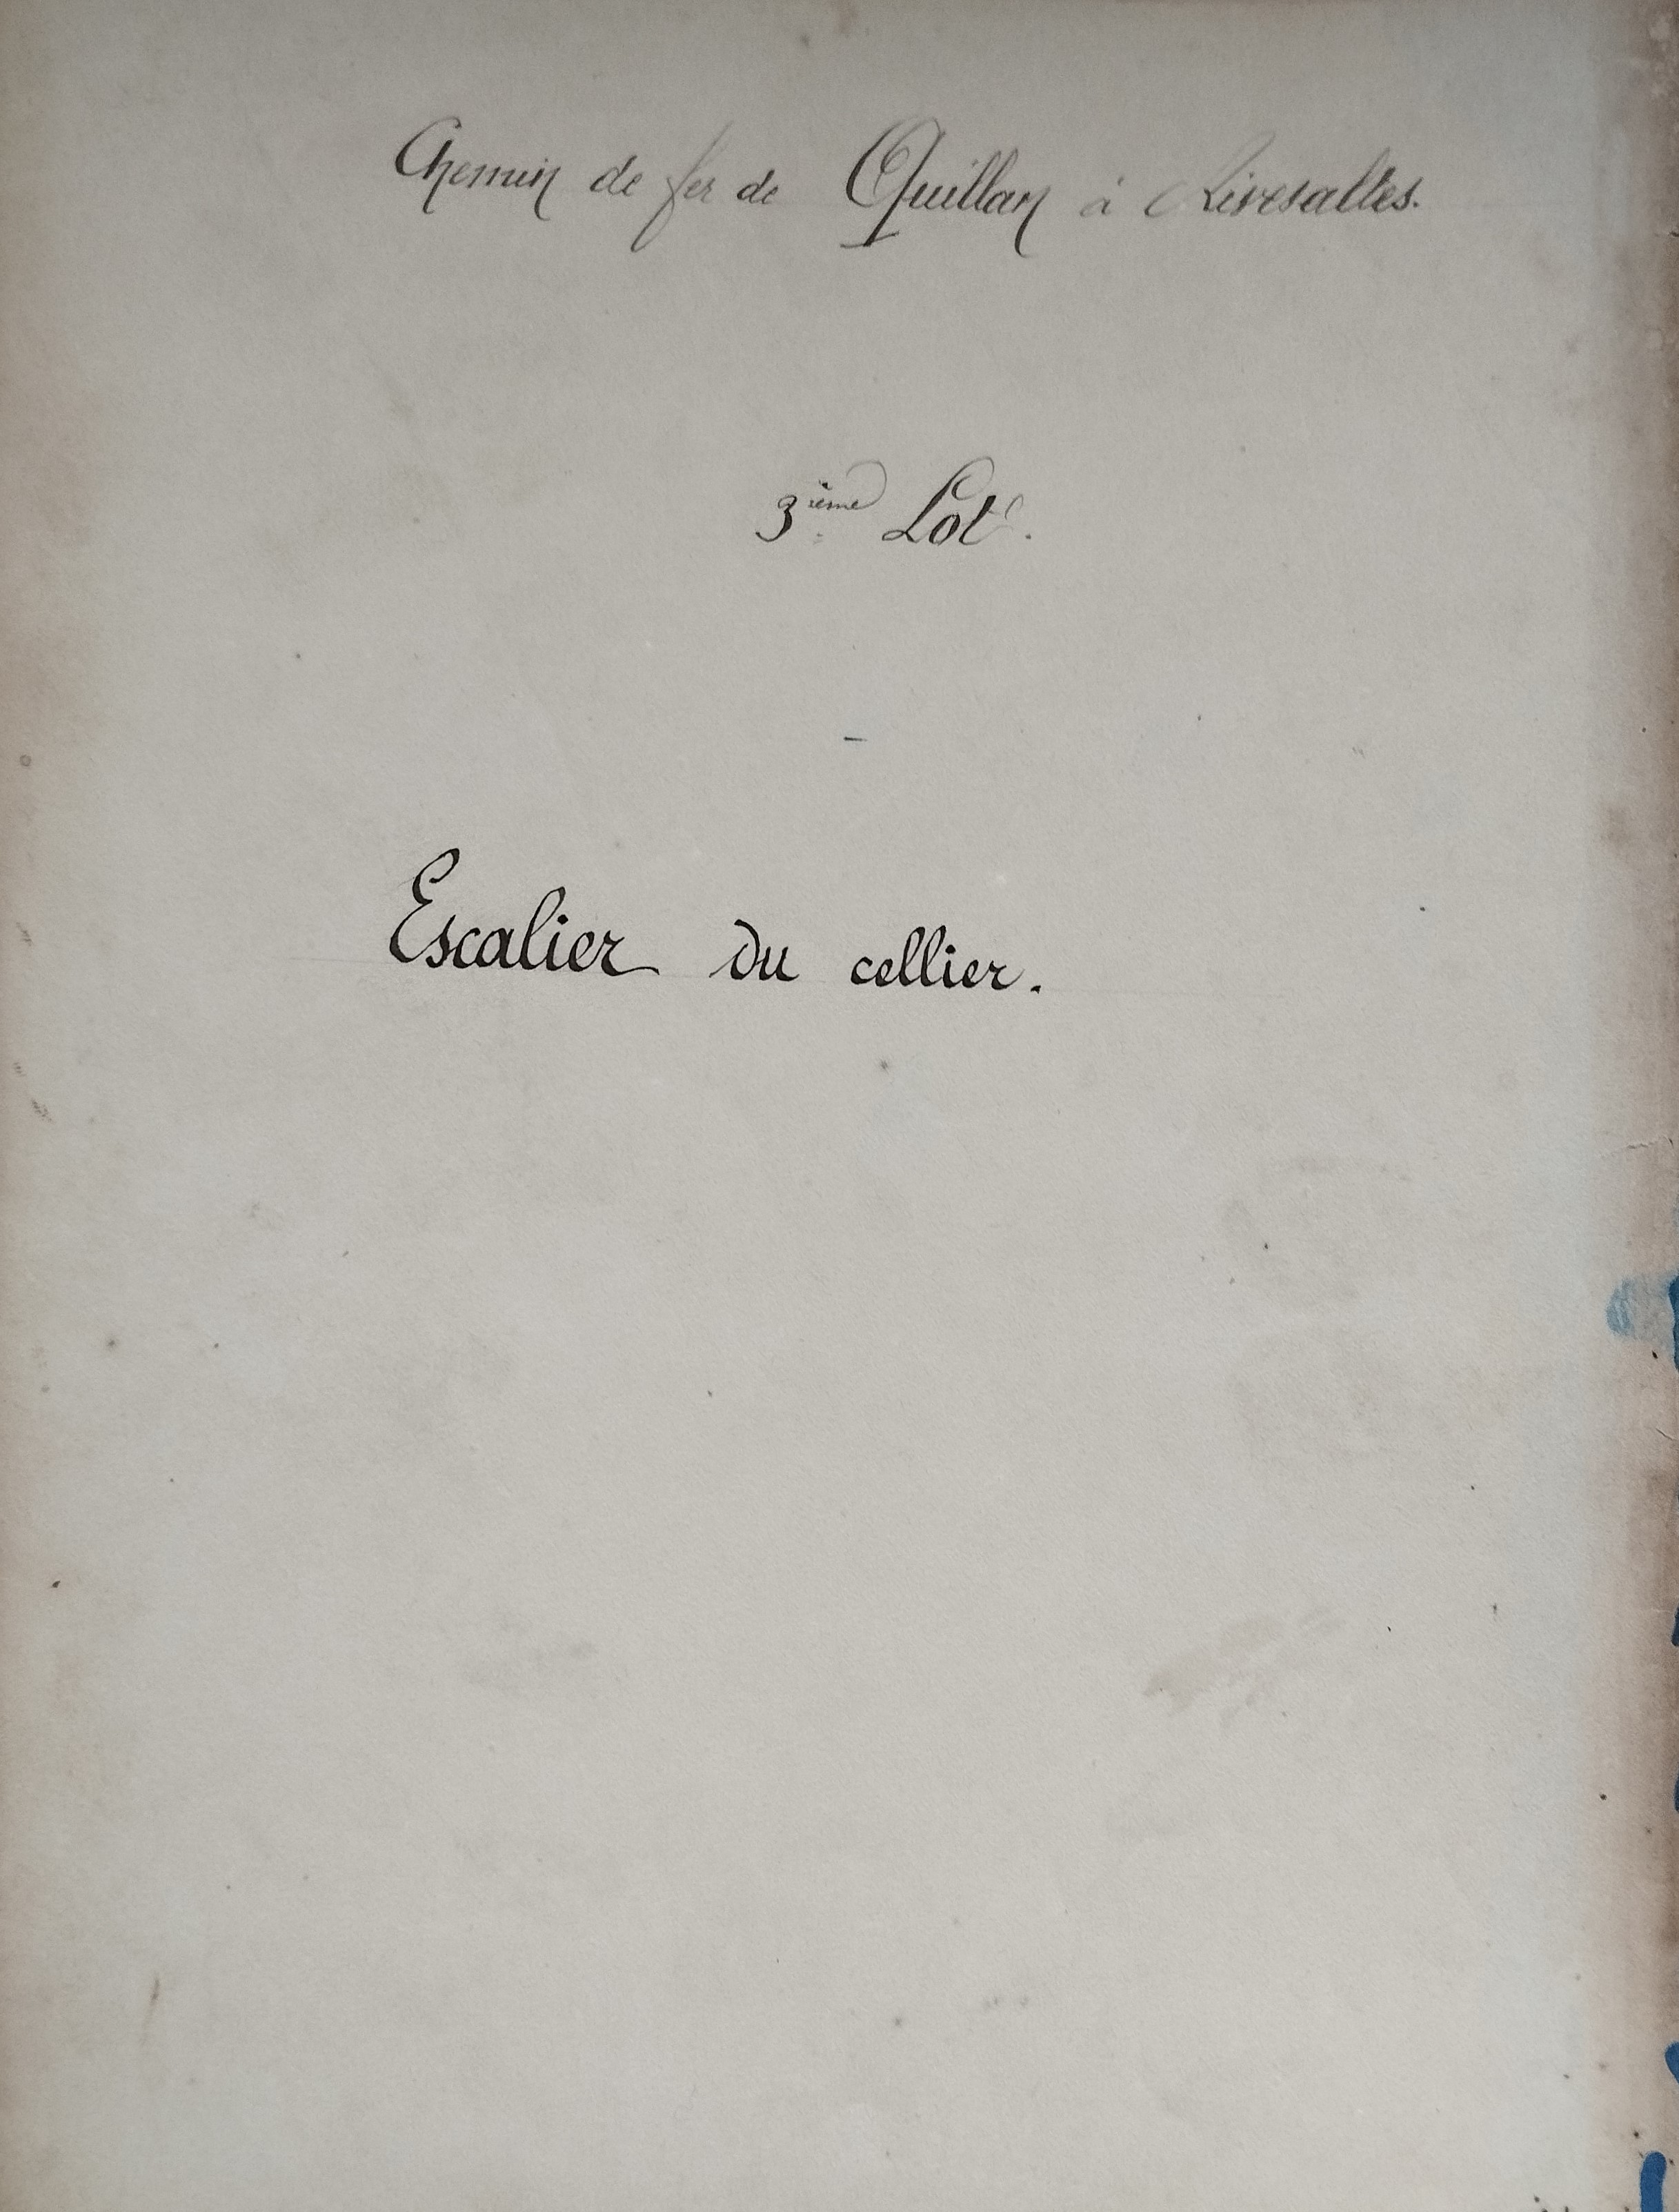 Chemin de fer de Quillan à Rivesaltes.
3ième Lot.
Escalier du cellier.